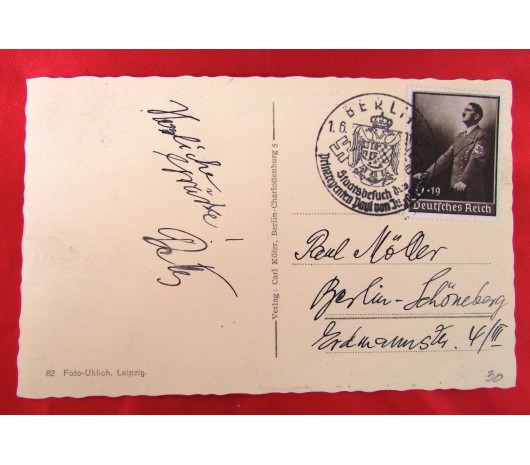 Herzliche
Grüße!
BERLIN
1.6.
Staatsbesuch des
Prinzregenten Paul von
+19
Deutsches Reich
Verlag: Carl Köfer, Berlin-Charlottenburg 5
Paul Möller
Berlin-Schöneberg
Erdmannstr. 4/III
82 Foto-Uhlich, Leipzig.
30